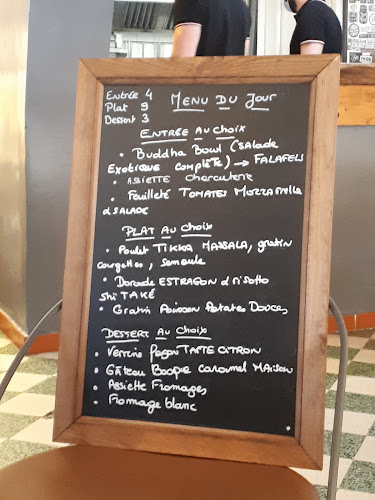 Entrée 4
Plat 9
Dessert 3
MENU DU JOUR
ENTRÉE AU CHOIX
• BUDDHA BOWL (SALADE
EXOTIQUE COMPLÈTE) → FALAFELS
• ASSIETTE Charcuterie
• Feuilleté TOMATES MOZZARELLA
& SALADE
PLAT AU CHOIX
• Poulet TIKKA MASSALA, gratin
courgettes, semoule
• Dorade ESTRAGON & risotto
shiTAKÉ
• Gratin Poisson Patates Douces,
DESSERT AU CHOIX
• Verrine façon TARTE CITRON
• Gâteau caramel MAISON
• Assiette Fromages,
• Fromage blanc